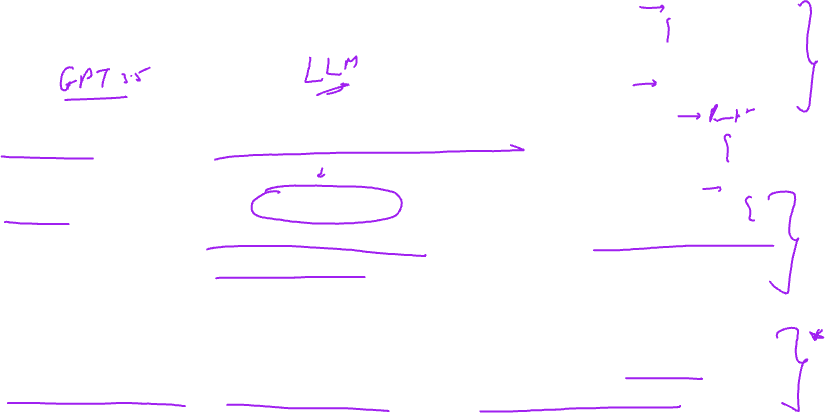 GPT 3.5
LLM